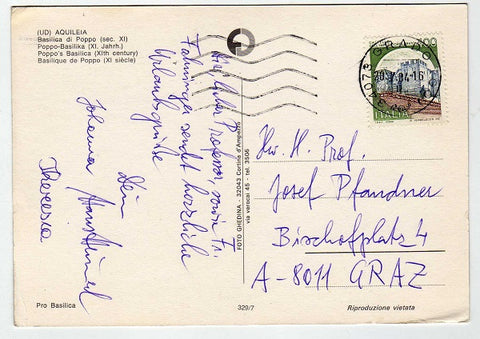 (UD) AQUILEIA
Basilica di Poppo (sec. XI)
Poppo-Basilika (XI. Jahrh.)
Poppo's Basilica (XIth century)
Basilique de Poppo (XI siècle)
lieber Professor, sowie Fr.
sendet herzliche
Urlaubsgrüße
Dein
Johanna
Theresia
FOTO GHEDINA - 32043 Cortina d'Ampezzo
via verocai 45 - tel. 3506
GRADO
ITALIA
H. H. Prof.
Josef Pfandner
Bischofplatz 4
A-8011 GRAZ
Pro Basilica
329/7
Riproduzione vietata